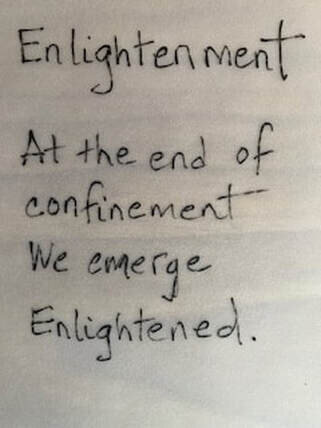 Enlightenment
At the end of
confinement
We emerge
Enlightened.